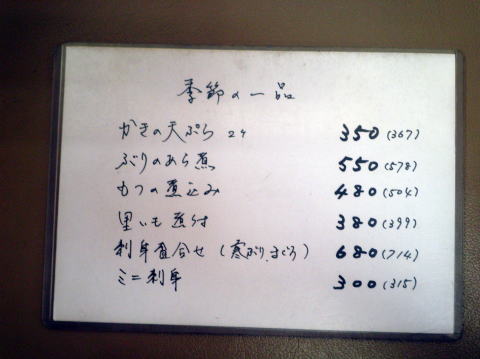 季節の一品
かきの天ぷら 2ケ 350(367)
ぶりのあら煮 550(578)
もつの煮込み 480(504)
里いも煮付 380(399)
刺身盛合せ(寒ぶり、まぐろ) 680(714)
ミニ刺身 300(315)